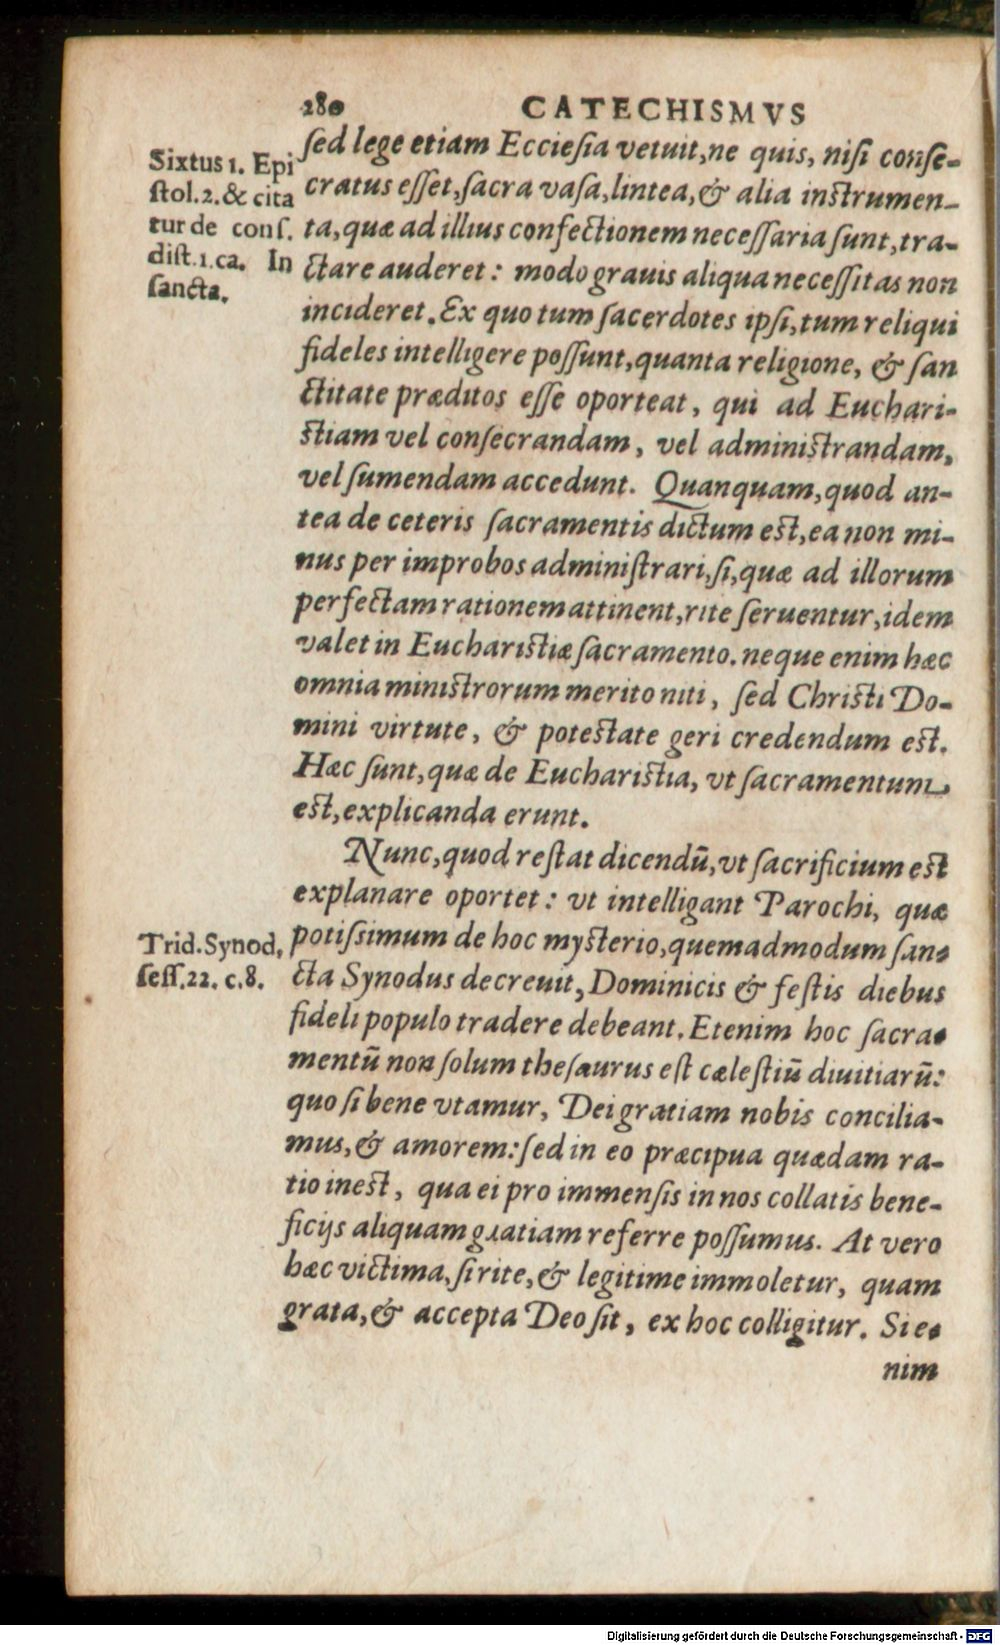 280 CATECHISMVS
Sixtus 1. Epi
ſtol.2.& cita
tur de conſ.
diſt.1.ca. In
ſancta.
ſed lege etiam Eccleſia vetuit,ne quis, niſi conſe-
cratus eſſet,ſacra vaſa,lintea,& alia inſtrumen-
ta,quæ ad illius confectionem neceſſaria ſunt,tra-
ctare auderet: modo grauis aliqua neceſſitas non
incideret. Ex quo tum ſacerdotes ipſi,tum reliqui
fideles intelligere poſſunt,quanta religione, & ſan
ctitate præditos eſſe oporteat, qui ad Euchari-
ſtiam vel conſecrandam, vel adminiſtrandam,
vel ſumendam accedunt. Quanquam,quod an-
tea de ceteris ſacramentis dictum eſt,ea non mi-
nus per improbos adminiſtrari,ſi,quæ ad illorum
perfectam rationem attinent,rite ſeruentur,idem
valet in Euchariſtiæ ſacramento. neque enim hæc
omnia miniſtrorum merito niti, ſed Chriſti Do-
mini virtute, & poteſtate geri credendum eſt.
Hæc ſunt,quæ de Euchariſtia, vt ſacramentum
eſt,explicanda erunt.
Nunc,quod reſtat dicendū,vt ſacrificium eſt
explanare oportet: vt intelligant Parochi, quæ
Trid.Synod.
ſeſſ.22. c.8.
potiſsimum de hoc myſterio,quemadmodum ſan-
cta Synodus decreuit, Dominicis & feſtis diebus
fideli populo tradere debeant. Etenim hoc ſacra-
mentū non ſolum theſaurus eſt cæleſtiū diuitiarū:
quo ſi bene vtamur, Dei gratiam nobis concilia-
mus,& amorem: ſed in eo præcipua quædam ra-
tio ineſt, qua ei pro immenſis in nos collatis bene-
ficijs aliquam gratiam referre poſſumus. At vero
hæc victima,ſi rite,& legitime immoletur, quam
grata,& accepta Deo ſit, ex hoc colligitur. Si e-
nim
Digitalisierung gefördert durch die Deutsche Forschungsgemeinschaft - DFG